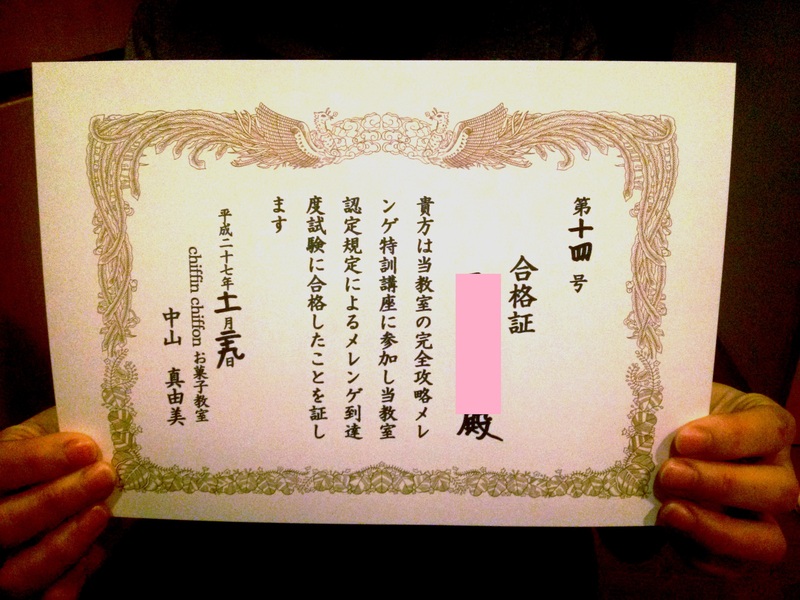 第十四号
合格証
殿
貴方は当教室の完全攻略メレ
ンゲ特訓講座に参加し当教室
認定規定によるメレンゲ到達
度試験に合格したことを証し
ます
平成二十七年十一月二十九日
chiffin chiffon お菓子教室
中山 真由美